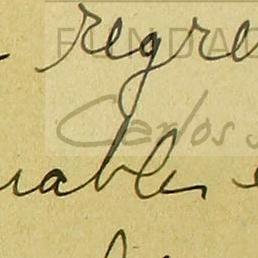 regre
FUNDAC
Carlos S
uables